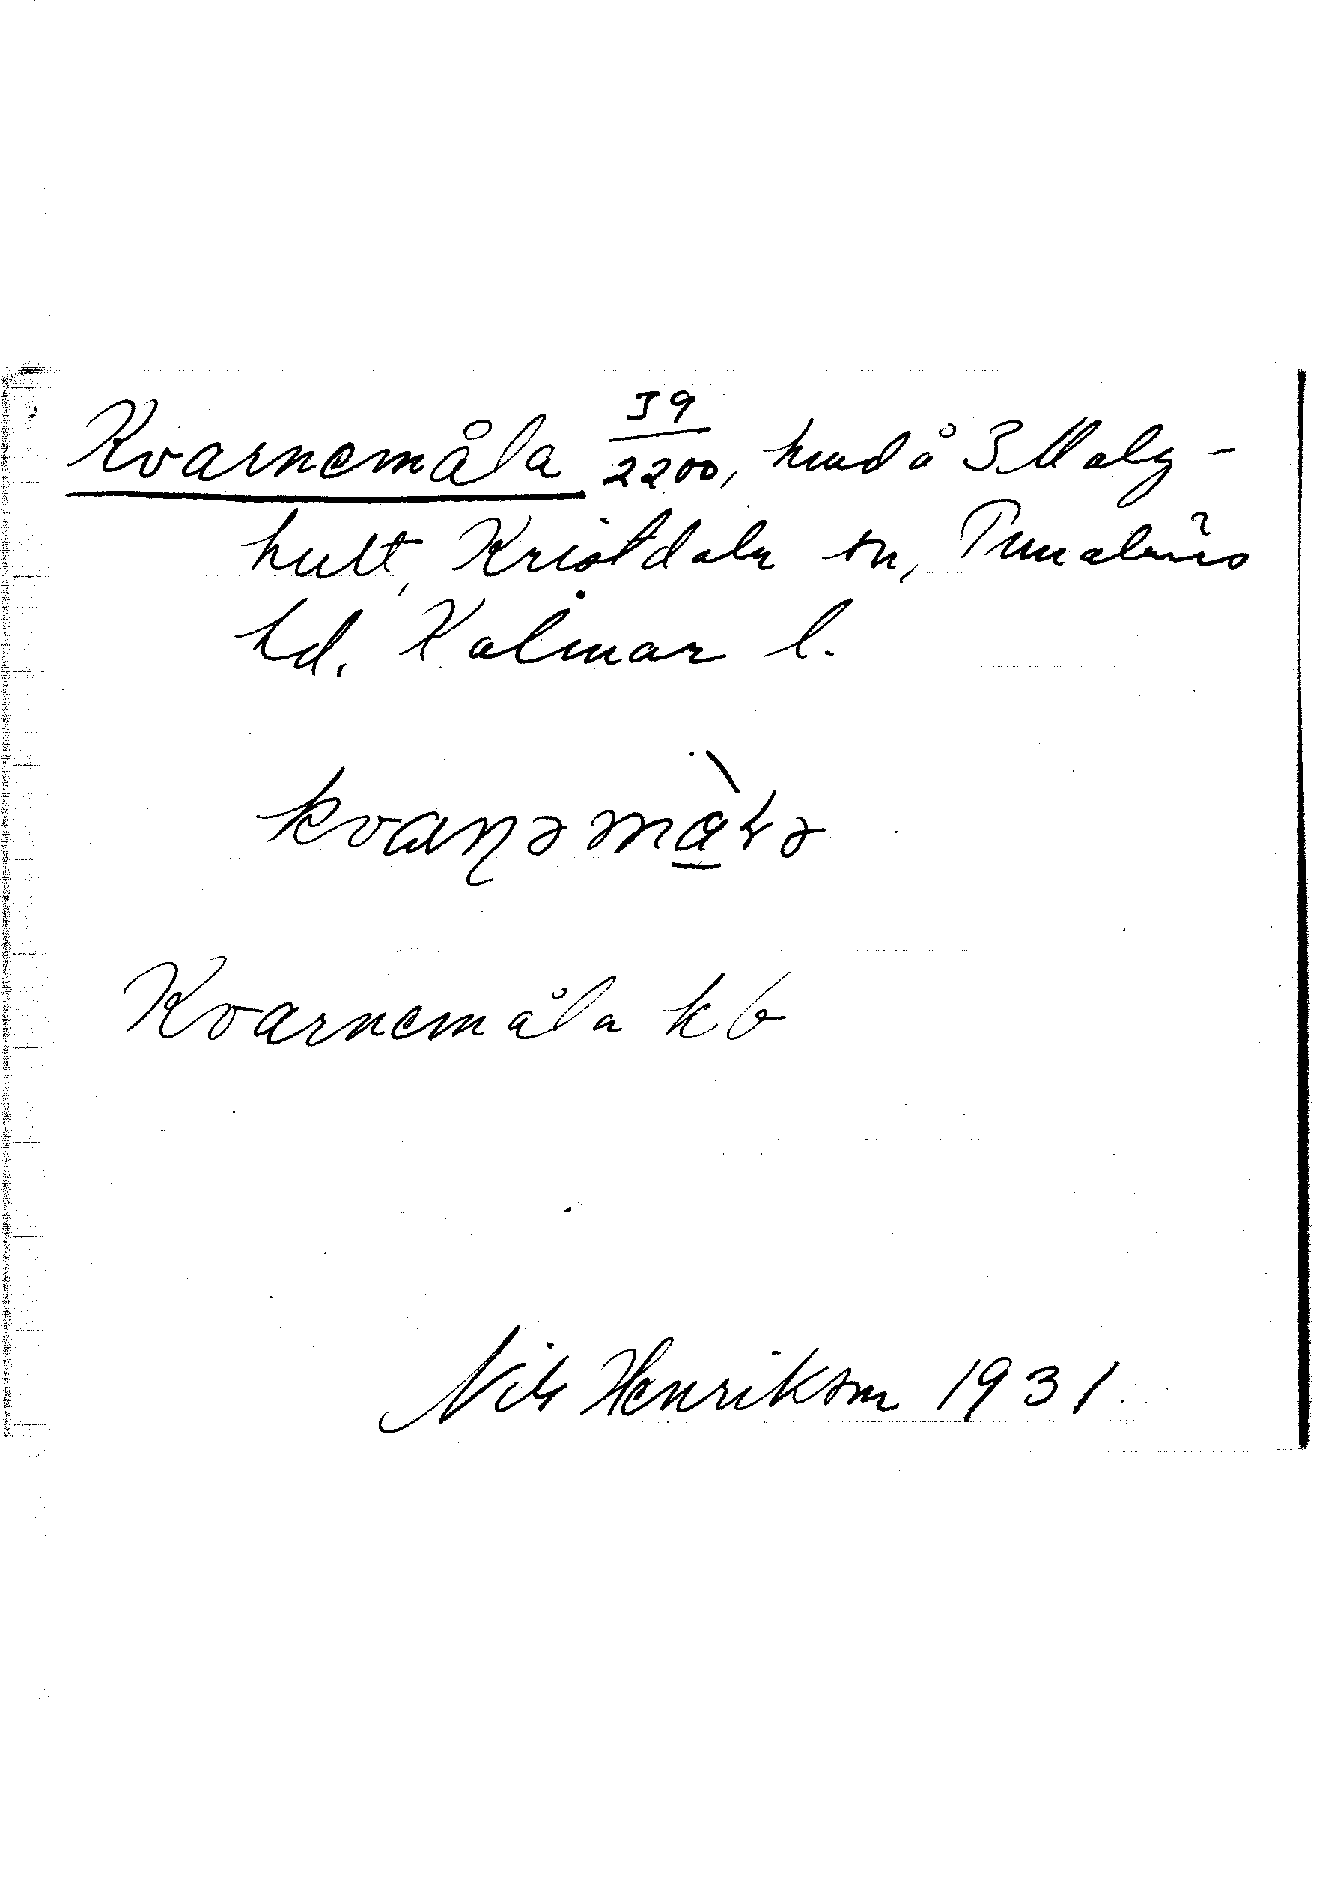 Kvarnemåla 39/2200, hmd å 3 Maly-
hult, Kristdala sn, Tunaläns
hd. Kalmar l.
kvaɳəmàlə
Kvarnemåla kb
Nils Henrikson 1931